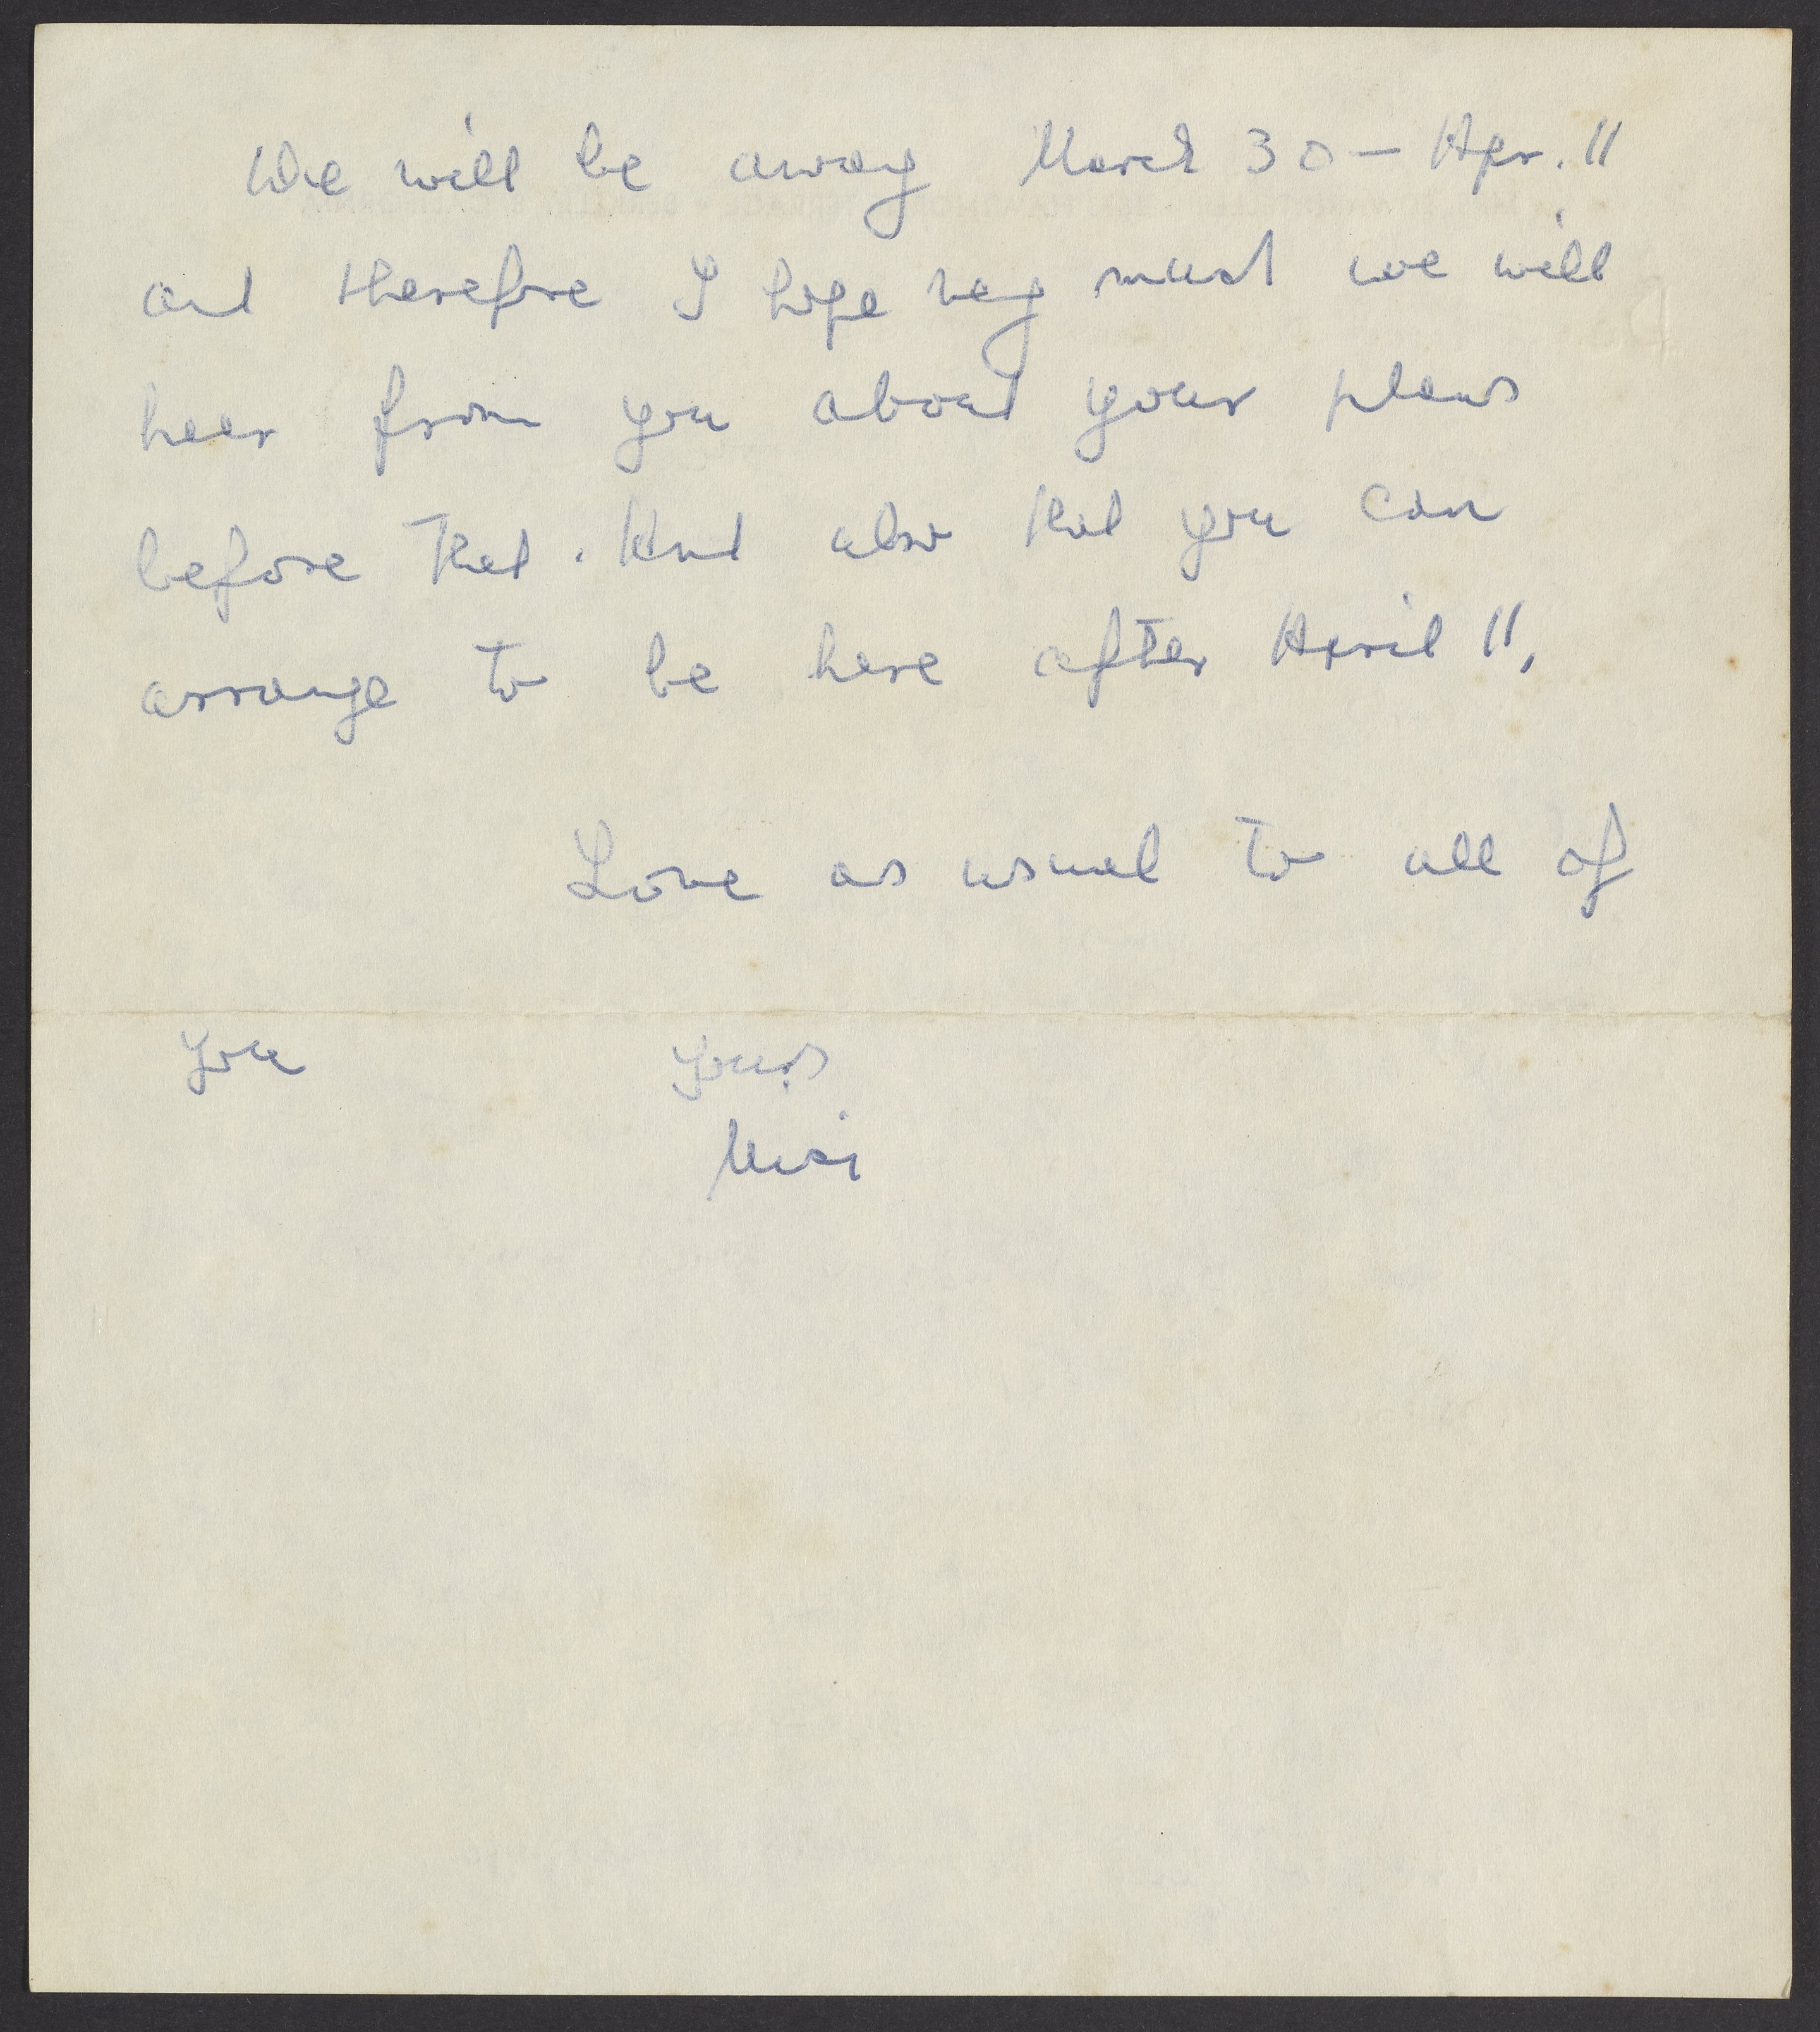 We will be away March 30 – Apr. 11
and therefore I hope very much we will
hear from you about your plans
before that. And also that you can
arrange to be here after April 11,
Love as usual to all of
you Yours
Mici